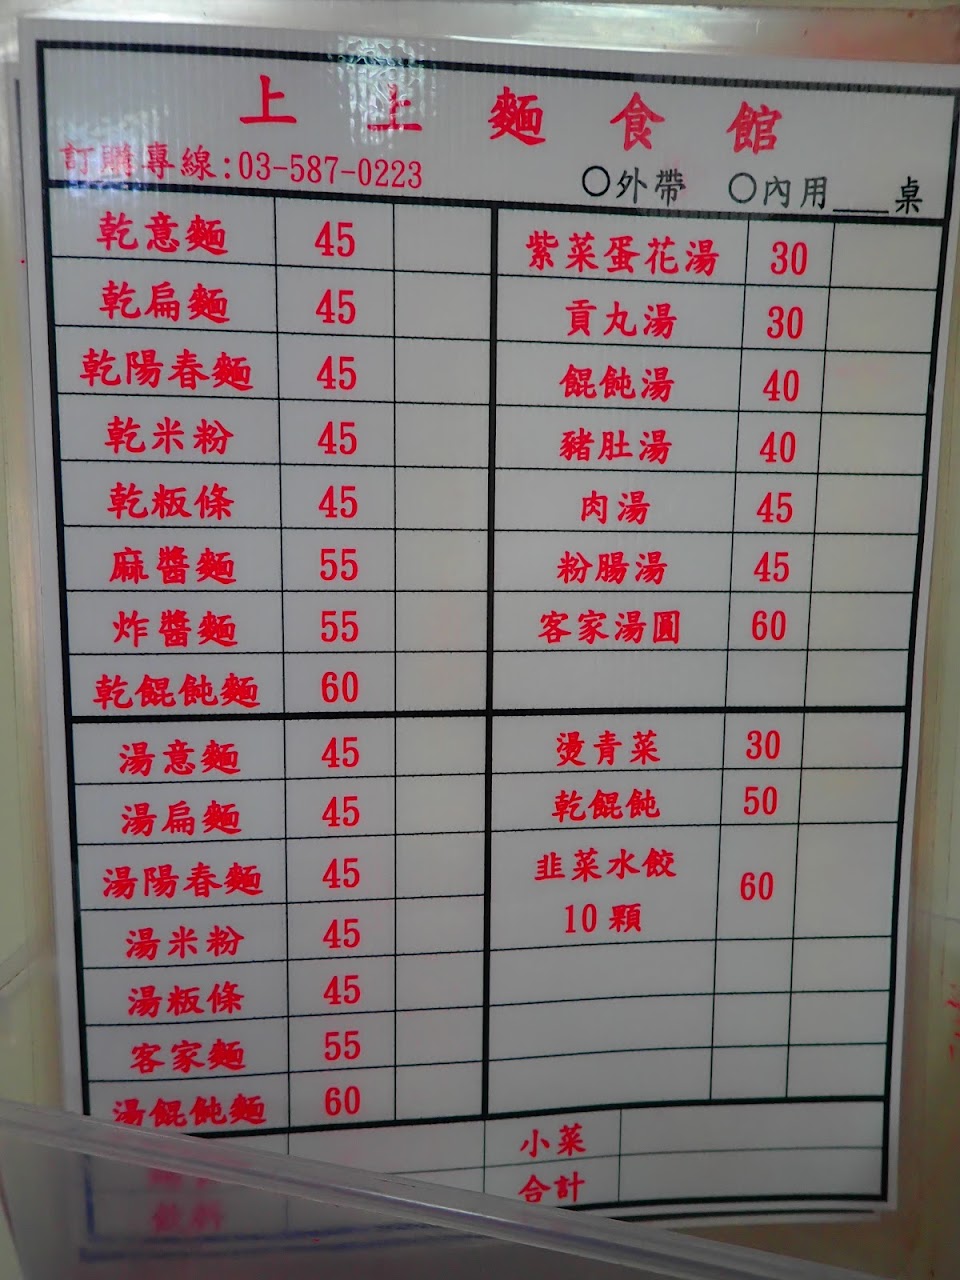 上上麵食館
訂購專線:03-587-0223
○外帶 ○內用___桌
乾意麵 45
乾扁麵 45
乾陽春麵 45
乾米粉 45
乾粄條 45
麻醬麵 55
炸醬麵 55
乾餛飩麵 60
湯意麵 45
湯扁麵 45
湯陽春麵 45
湯米粉 45
湯粄條 45
客家麵 55
湯餛飩麵 60
飲料
紫菜蛋花湯 30
貢丸湯 30
餛飩湯 40
豬肚湯 40
肉湯 45
粉腸湯 45
客家湯圓 60
燙青菜 30
乾餛飩 50
韭菜水餃 60
10顆
小菜
合計